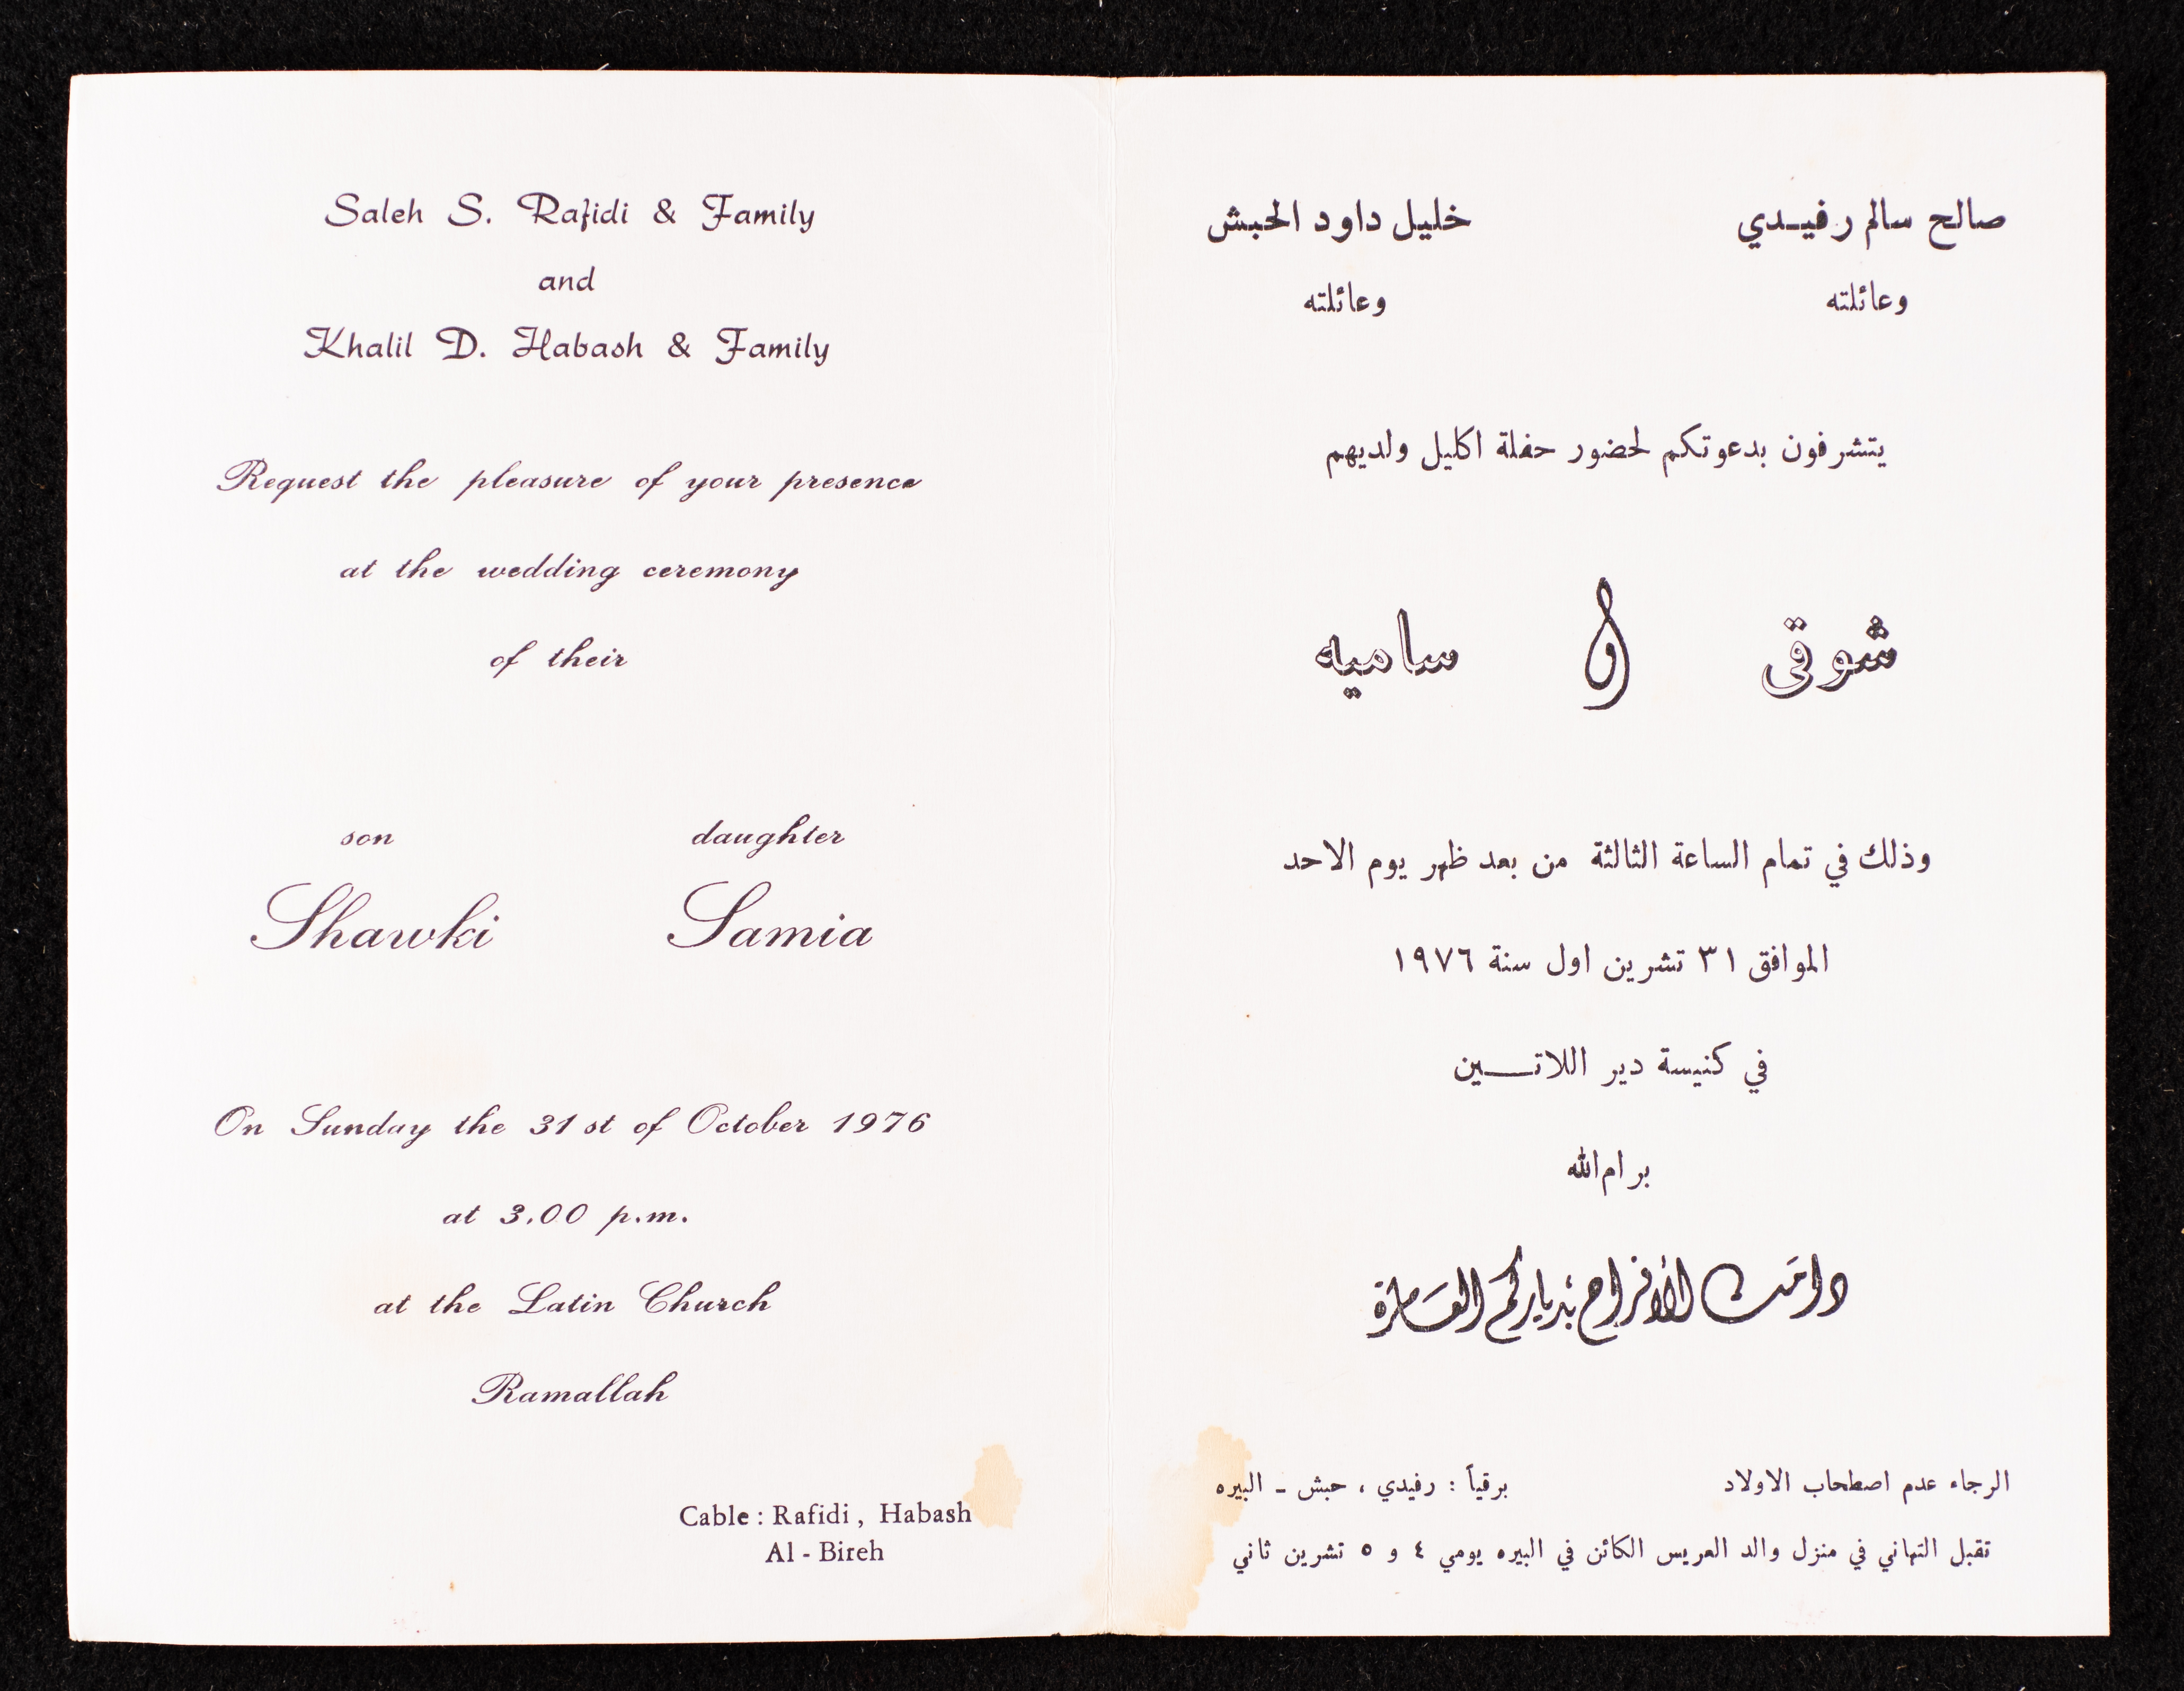 Saleh S. Rafidi & Family
and
Khalil D. Habash & Family
Request the pleasure of your presence
at the wedding ceremony
of their
son daughter
Shawki Samia
On Sunday the 31 st of October 1976
at 3.00 p.m.
at the Latin Church
Ramallah
Cable : Rafidi , Habash
Al - Bireh
صالح سالم رفيدي خليل داود الحبش
وعائلته وعائلته
يتشرفون بدعوتكم لحضور حفلة اكليل ولديهم
شوقي و ساميه
وذلك في تمام الساعة الثالثة من بعد ظهر يوم الاحد
الموافق ٣١ تشرين اول سنة ١٩٧٦
في كنيسة دير اللاتين
برام الله
دامت الأفراح بدياركم العامرة
الرجاء عدم اصطحاب الاولاد برقياً : رفيدي ، حبش - البيره
تقبل التهاني في منزل والد العريس الكائن في البيره يومي ٤ و ٥ تشرين ثاني